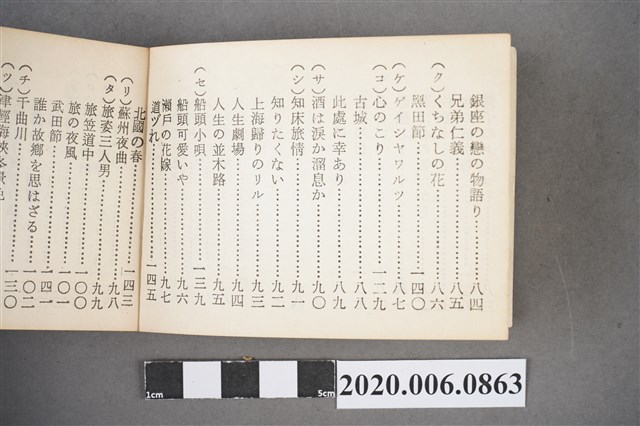 銀座の戀の物語り……八四
兄弟仁義……八五
(ク)くちなしの花……八六
黒田節……一四〇
(ケ)ゲイシャワルツ……八七
(コ)心のこり……一二九
古城……八八
此處に幸あり……八九
(サ)酒は涙か溜息か……九〇
(シ)知床旅情……九一
知りたくない……九二
上海歸りのリル……九三
人生劇場……九四
人生の並木路……九五
(セ)船頭小唄……一三九
船頭可愛いや……九六
瀬戸の花嫁……九七
道づれ……一四五
北國の春
(リ)蘇州夜曲……一四三
(タ)旅姿三人男……九八
旅笠道中……九九
旅の夜風……一〇〇
武田節……一〇一
誰か故郷を思はざる……一四一
(チ)千曲川……一〇二
(ツ)津輕海峽冬景色……一三〇
1cm
5cm
2020.006.0863